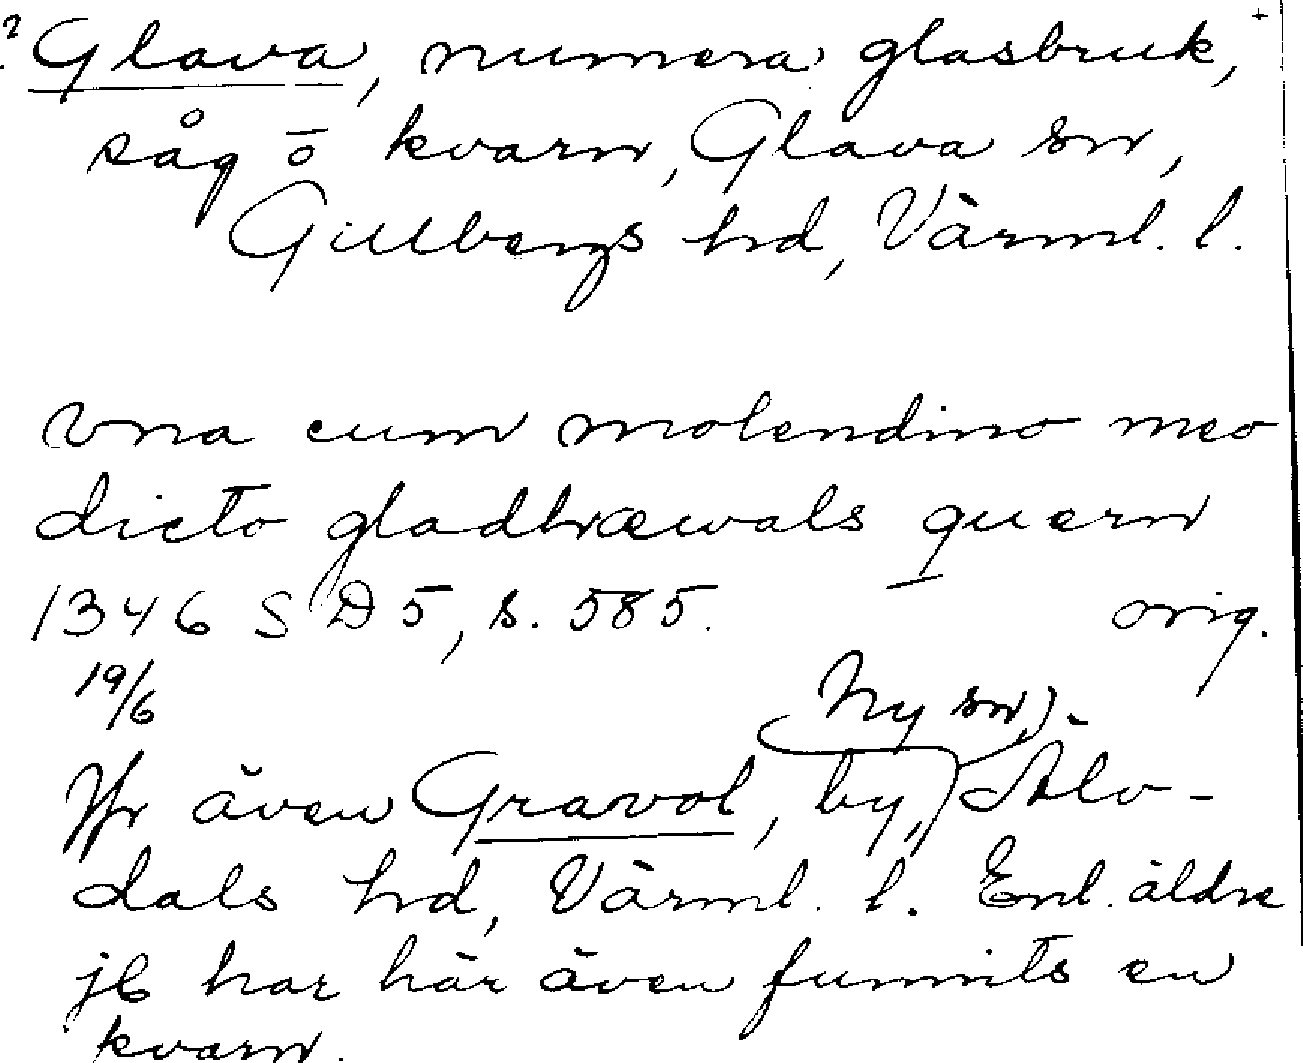 ? Glava, numera glasbruk, +
såg o kvarn, Glava sn,
Gillbergs hd, Värml. l.
vna cum molendino meo
dicto gladhræwals quern
1346 SD 5, s. 585. orig.
19/6
Ny sn).
Jfr även Gravol, by, Älv-
dals hd, Värml. l. Enl. äldre
jb har här även funnits en
kvarn.